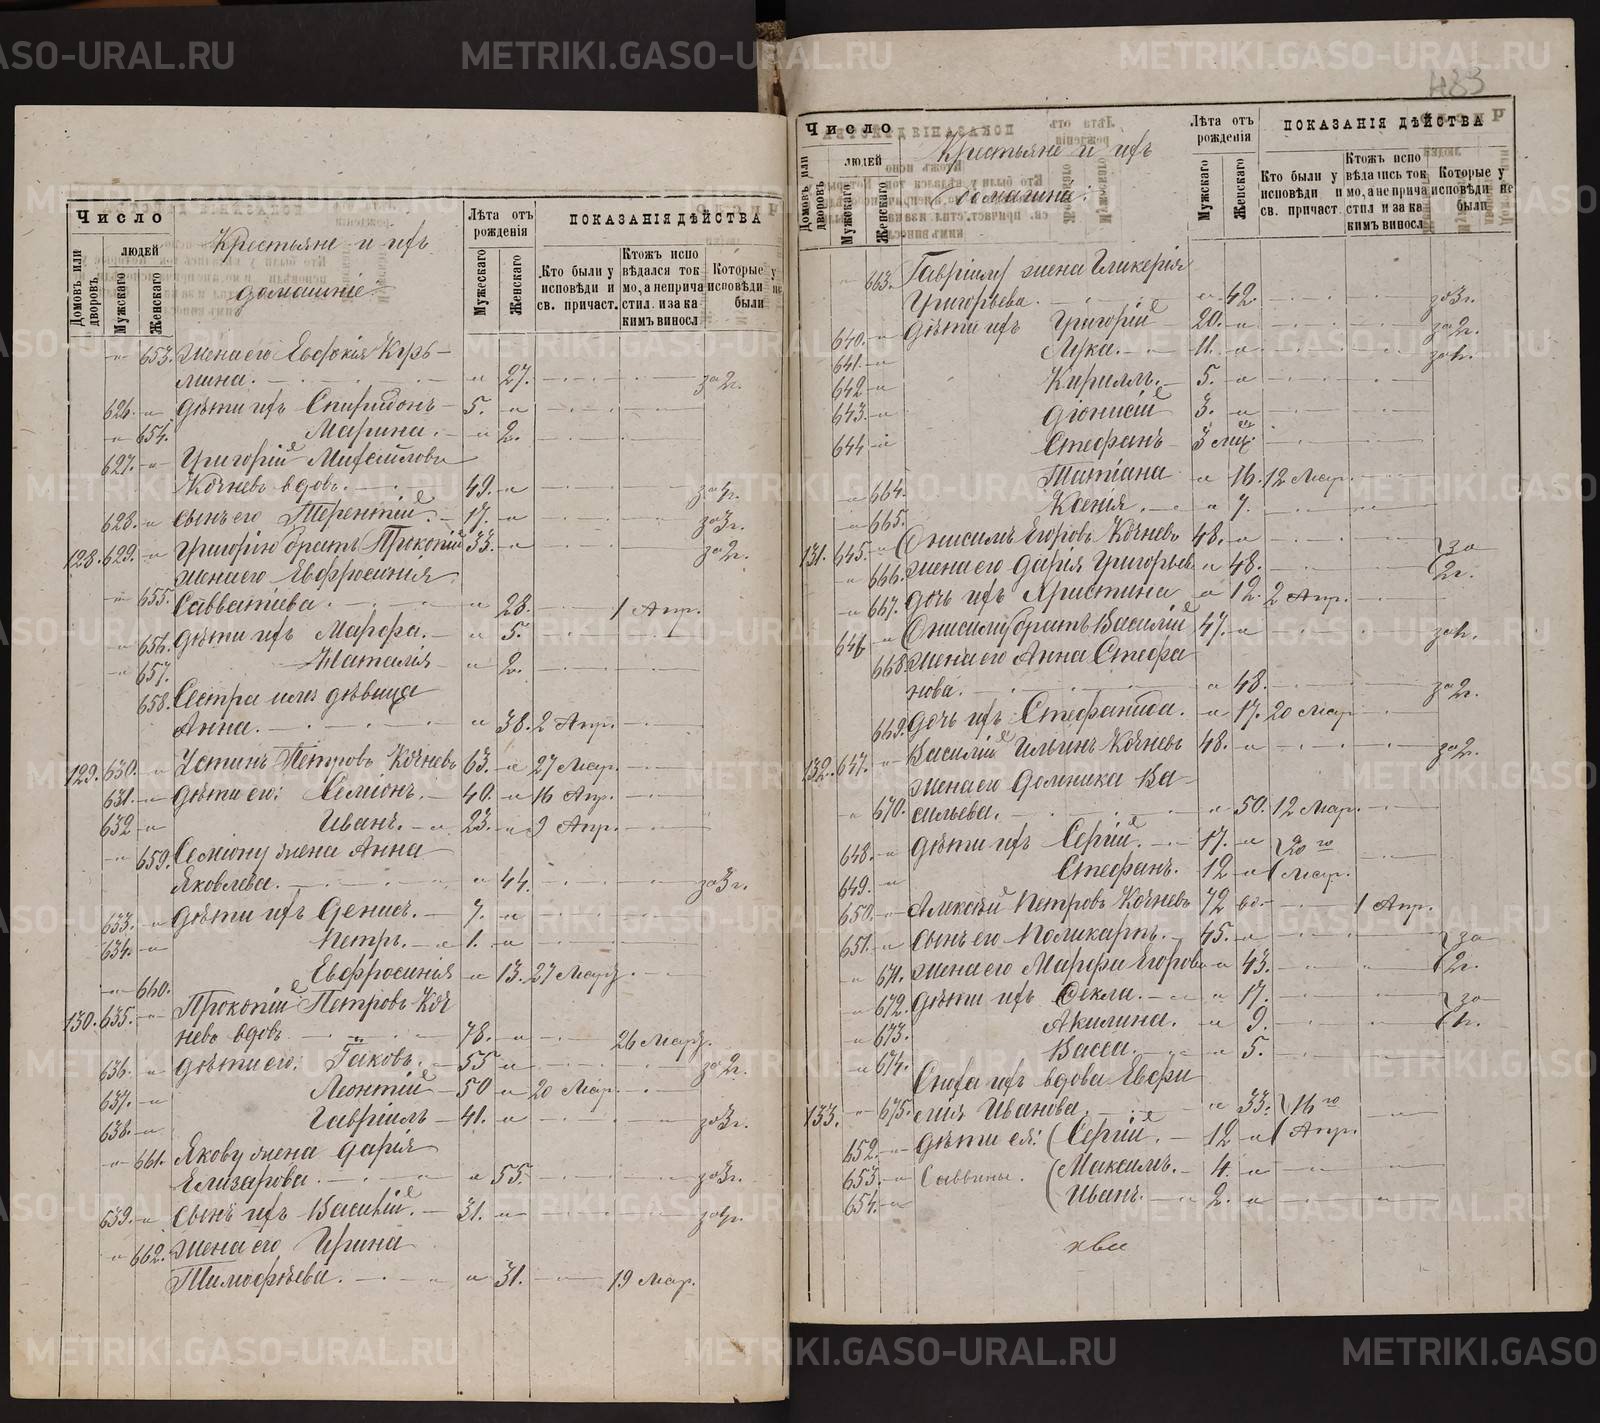 METRIKI.GASO-URAL.RU
Число
Домовъ или дворовъ.
людей
Мужескаго
Женскаго
Крестьяне и ихъ
домашніе:
Лѣта отъ рожденія
Мужескаго
Женскаго
ПОКАЗАНІЯ ДѢЙСТВА
Кто были у исповѣди и св. причаст.
Ктожъ исповѣдался токмо, а неприча стил. и за ка кимъ виносл
Которые у исповѣди не были
653. жена его Евдокія Кирь-
мина. 27. за 2 г.
626. дѣти ихъ Спиридонъ 5.
654. Марина. 2.
627. Григорій Михайловъ
Кочневъ вдовъ. 49. за 4 г.
628. сынъ его Терентій. 17. за 3 г.
128. 629. Григорію братъ Прокопій 33. за 2 г.
жена его Евфросинія
655. Савватіева. 28. 1 Апр.
656. дѣти ихъ Марфа. 5.
657. Наталія 2.
658. Сестра ихъ дѣвица
Анна. 38. 2 Апр.
129. 630. Устинъ Петровъ Кочневъ 63. 27 Мар.
631. дѣти его: Семіонъ. 40. 16 Апр.
632 Иванъ. 23. 9 Апр.
659. Семіону жена Анна
Яковлева. 44. за 3 г.
633. дѣти ихъ Денисъ. 7.
634. Петръ. 1.
660. Евфросинія 13. 27 Мар.
130. 635. Прокопій Петровъ Коч
невъ вдовъ 78. 26 Мар.
636. дѣти его: Іаковъ. 55 за 2 г.
637. Леонтій 50 20 Мар.
638. Гавріилъ 41. за 3 г.
661. Якову жена Дарія
Елизарова. 55. за 3 г.
639. сынъ ихъ Василій. 31. за 4 г.
662. жена его Ирина
Тимофѣева. 31. 19 Мар.
483
Число
Домовъ или дворовъ
людей
Мужскаго
Женскаго
Крестьяне и ихъ
домашніе:
Лѣта отъ рожденія
Мужскаго
Женскаго
ПОКАЗАНІЯ ДѢЙСТВА
Кто были у исповѣди и св. причаст.
Ктожъ испо вѣдались ток мо, а неприча стил и за ка кимъ виносл
Которые у исповѣди не были
663. Гавріилу жена Гликерія
Григорьева. 42. за 3 г.
640. дѣти ихъ Григорій 20. за 2 г.
641. Лука. 11. за 1 г.
642 Кириллъ. 5.
643. Діонисій 3.
644 Стефанъ 3 мѣс.
664. Татіана 16. 12 Мар.
665. Ксенія. 7.
131. 645. Онисимъ Егоровъ Кочневъ 48. за
666. жена его Дарія Григорьева 48. 2 г.
667. дочь ихъ Христина 12. 2 Апр.
646 Онисиму братъ Василій 47. за 1 г.
668 жена его Анна Стефа
нова. 48. за 2 г.
669. дочь ихъ Стефанида. 17. 20 Мар
132. 647. Василій Ильинъ Кочневъ 48. за 2 г.
жена его Домника Ва-
670. сильева. 50. 12 Мар.
648. дѣти ихъ Сергій. 17. 20 го
649. Стефанъ. 12 Мар.
650. Алексѣй Петровъ Кочневъ 72 1 Апр.
651. сынъ его Поликарпъ. 45. за
671. жена его Марфа Егорова 43. 2 г.
672. дѣти ихъ Ѳекла. 17. за
673. Акилина. 9. 1 г.
674. Васса. 5.
Сноха ихъ вдова Еври
133. 675. Иванова. 33. 16 го
652. дѣти ея: Сергій. 12 Апр.
653. Саввины. Максимъ. 4.
654. Иванъ. 2.